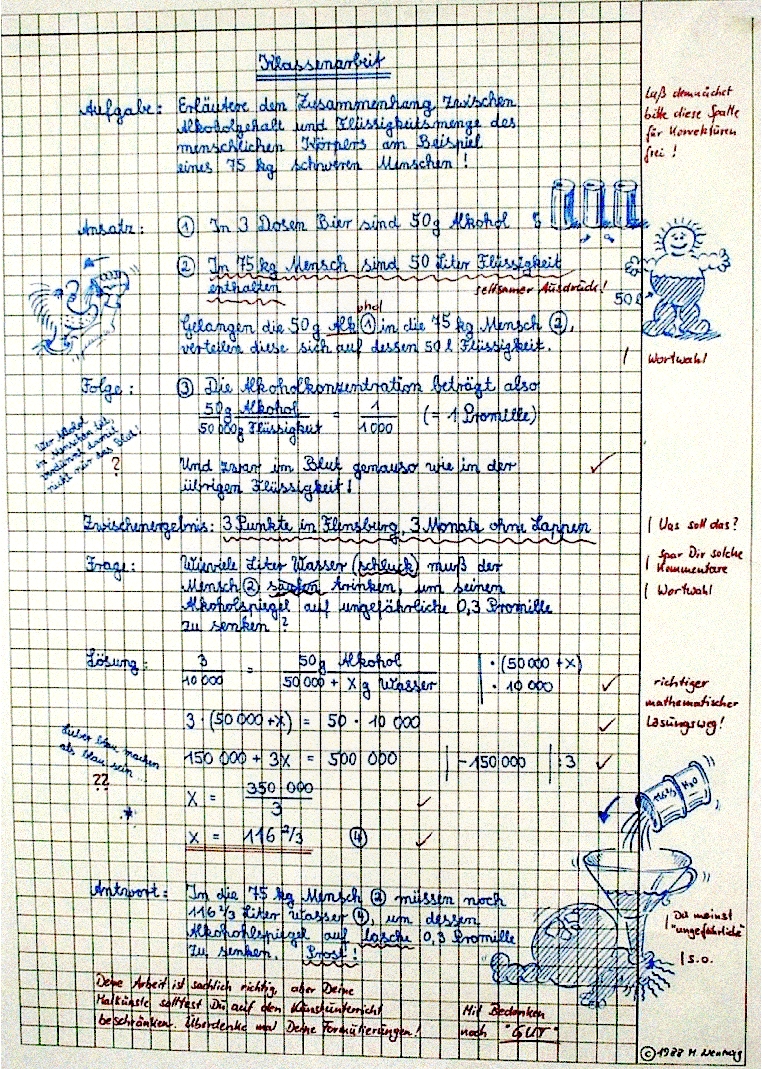 Klassenarbeit
Laß demnächst
bitte diese Spalte
für Korrektüren
frei !
Aufgabe: Erläutere den Zusammenhang zwischen
Alkoholgehalt und Flüssigkeitsmenge des
menschlichen Körpers am Beispiel
eines 75 kg schweren Menschen !
Ansatz: ① In 3 Dosen Bier sind 50g Alkohol
② In 75 kg Mensch sind 50 Liter Flüssigkeit
enthalten
seltsamer Ausdruck!
50 l
ohol
Gelangen die 50 g Alk ① in die 75 kg Mensch ②,
verteilen diese sich auf dessen 50 l Flüssigkeit.
| Wortwahl
Folge: ③ Die Alkoholkonzentration beträgt also
50g Alkohol / 50 000g Flüssigkeit = 1 / 1000 (= 1 Promille)
Wer Alkohol
im Menschen hat,
verdünnt damit
nicht nur das Blut!
?
Und zwar im Blut genauso wie in der
übrigen Flüssigkeit!
✓
Zwischenergebnis: 3 Punkte in Flensburg, 3 Monate ohne Lappen
| Was soll das?
Frage: Wieviele Liter Wasser (schluck) muß der
Mensch ② saufen trinken, um seinen
Alkoholspiegel auf ungefährliche 0,3 Promille
zu senken ?
| Spar Dir solche
Kommentare
| Wortwahl
Lösung: 3 / 10 000 = 50g Alkohol / 50 000 + X g Wasser | · (50 000 + X) · 10 000 ✓
richtiger
mathematischer
Lösungsweg!
3 · (50 000 + X) = 50 · 10 000 ✓
Lieber blau machen
als blau sein ...
??
150 000 + 3X = 500 000 | −150 000 | :3 ✓
X = 350 000 / 3 ✓
X = 116 2/3 ④ ✓
116 2/3 H₂O
Antwort: In die 75 kg Mensch ② müssen noch
116 2/3 Liter Wasser ④, um dessen
Alkohohlspiegel auf lasche 0,3 Promille
zu senken. Prost !
| Du meinst
"ungefährliche"
| s.o.
Deine Arbeit ist sachlich richtig, aber Deine
Malkünste solltest Du auf den Kunstunterricht
beschränken. Überdenke mal Deine Formulierungen!
Mit Bedenken
noch "GUT"
© 1988 M.